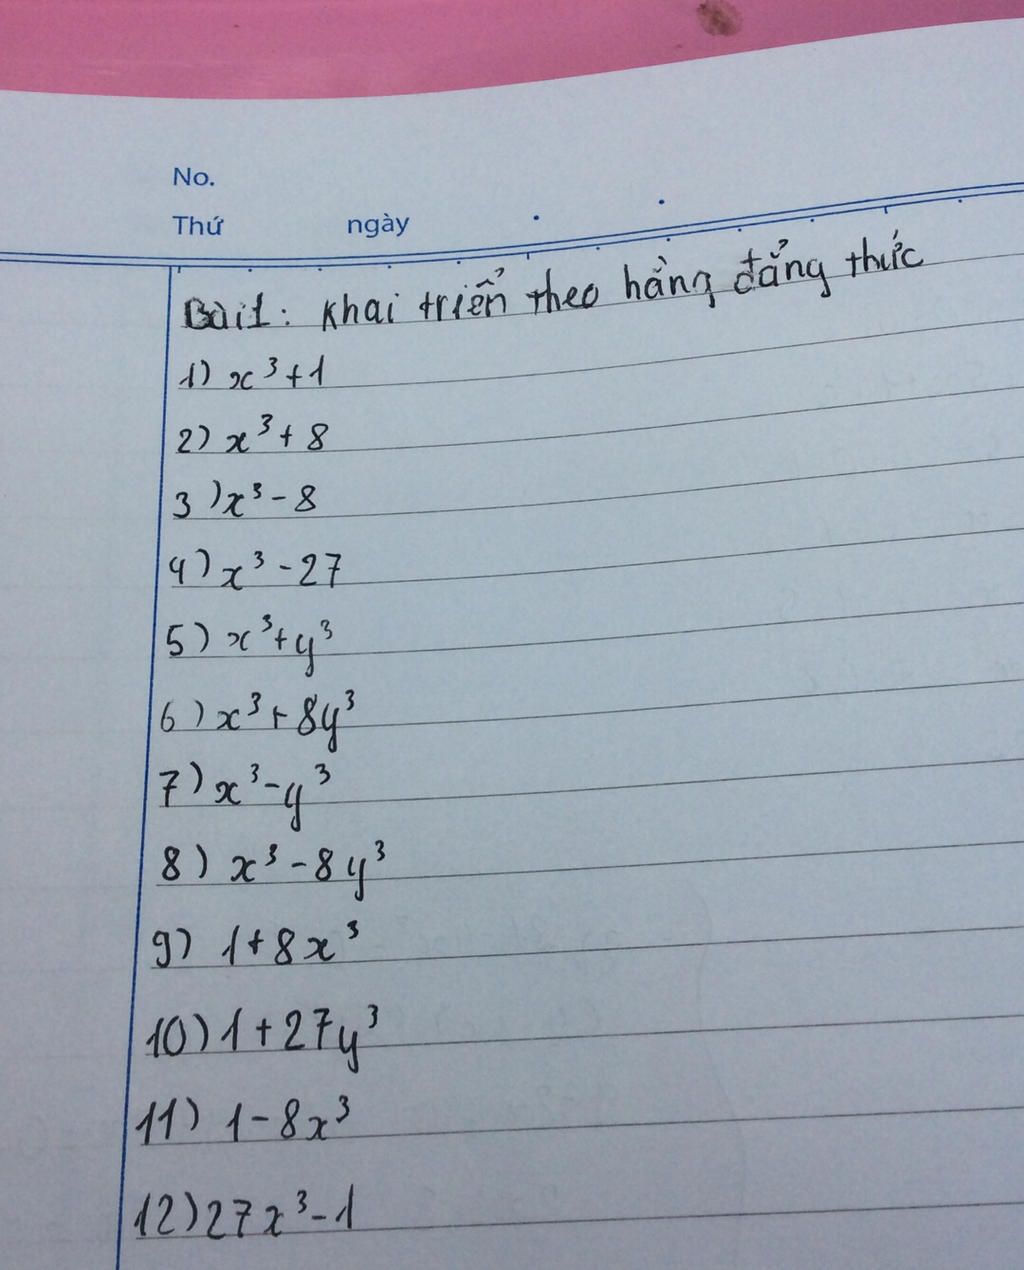 No.
Thứ ngày
Bài 1: Khai triển theo hằng đẳng thức
1) x³ + 1
2) x³ + 8
3) x³ - 8
4) x³ - 27
5) x³ + y³
6) x³ + 8y³
7) x³ - y³
8) x³ - 8y³
9) 1 + 8x³
10) 1 + 27y³
11) 1 - 8x³
12) 27x³ - 1